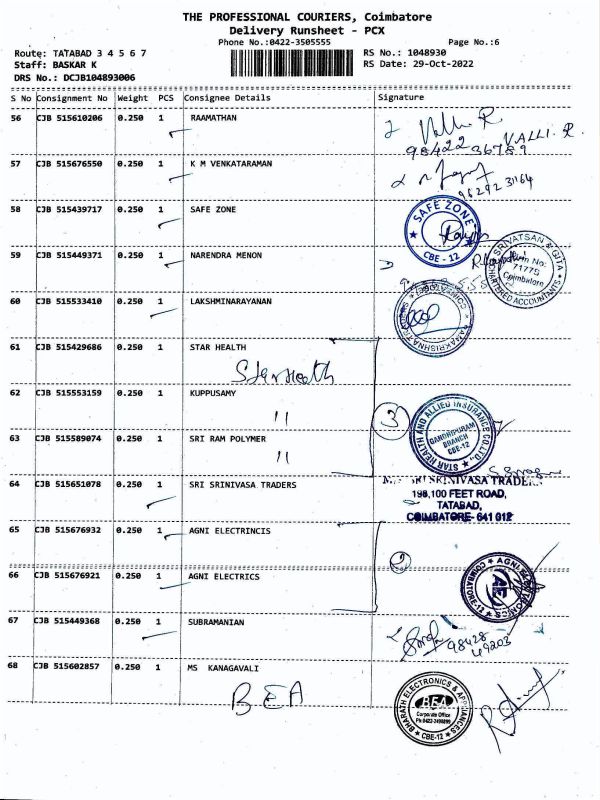 THE PROFESSIONAL COURIERS, Coimbatore
Delivery Runsheet - PCX
Phone No.:0422-3505555 Page No.:6
Route: TATABAD 3 4 5 6 7 RS No.: 1048930
Staff: BASKAR K RS Date: 29-Oct-2022
DRS No.: DCJB104893006
S No Consignment No Weight PCS Consignee Details Signature
56 CJB 515610206 0.250 1 RAAMATHAN
VALLI. R.
98422 36789
57 CJB 515676550 0.250 1 K M VENKATARAMAN
58 CJB 515439717 0.250 1 SAFE ZONE
SAFE ZONE
CBE - 12
59 CJB 515449371 0.250 1 NARENDRA MENON
SRIVATSAN & GITA
Coimbatore
CHARTERED ACCOUNTANTS
60 CJB 515533410 0.250 1 LAKSHMINARAYANAN
61 CJB 515429686 0.250 1 STAR HEALTH
Star Health
62 CJB 515553159 0.250 1 KUPPUSAMY
11
3
STAR HEALTH AND ALLIED INSURANCE CO.LTD.,
GANDHIPURAM
BRANCH
CBE-12
63 CJB 515589074 0.250 1 SRI RAM POLYMER
11
64 CJB 515651078 0.250 1 SRI SRINIVASA TRADERS
SRI SRINIVASA TRADERS
198,100 FEET ROAD,
TATABAD,
COIMBATORE- 641 012
65 CJB 515676932 0.250 1 AGNI ELECTRINCIS
2
66 CJB 515676921 0.250 1 AGNI ELECTRICS
COIMBATORE-12
67 CJB 515449368 0.250 1 SUBRAMANIAN
98428
49203
68 CJB 515602857 0.250 1 MS KANAGAVALI
BEA
BHARATH ELECTRONICS & APPLIANCES
BEA
Corporate Office
CBE-12